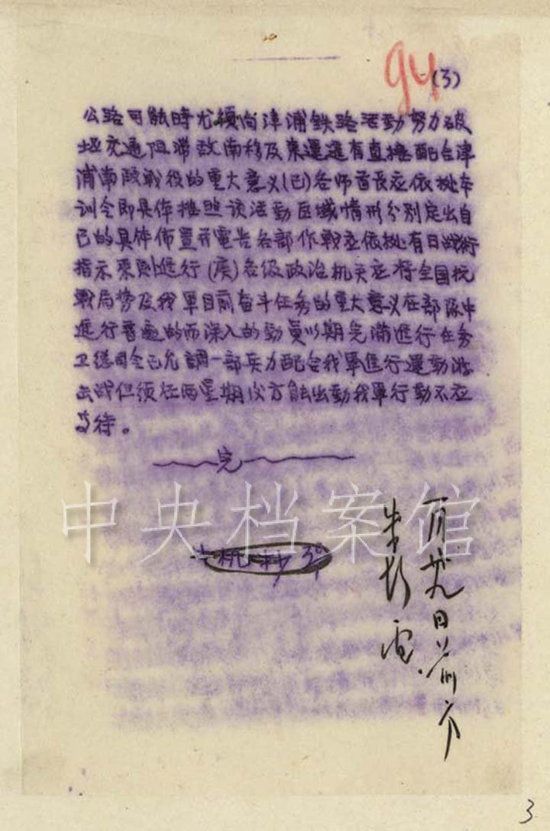 94
(3)
公路可能時尤須向津浦鉄路活动努力破
坏交通阻滞敌南移及東運還有直接配合津
浦南段戰役的重大意义(己)各师首長应依拠本
训令即具体按照该活動区域情形分别定出自
己的具体佈置并電告各部作戰应依拠有日战行
指示原则進行(庚)各级政治机关应将全国抗
戰局势及我軍目前奋斗任务的重大意义在部隊中
進行普遍的而深入的動員以期完满進行任务
卫总司令已允調一部兵力配合我軍進行運動游
击战但须在两星期以方能出動我軍行動不应
等待。
完
朱彭電
日前方
中央档案馆
3